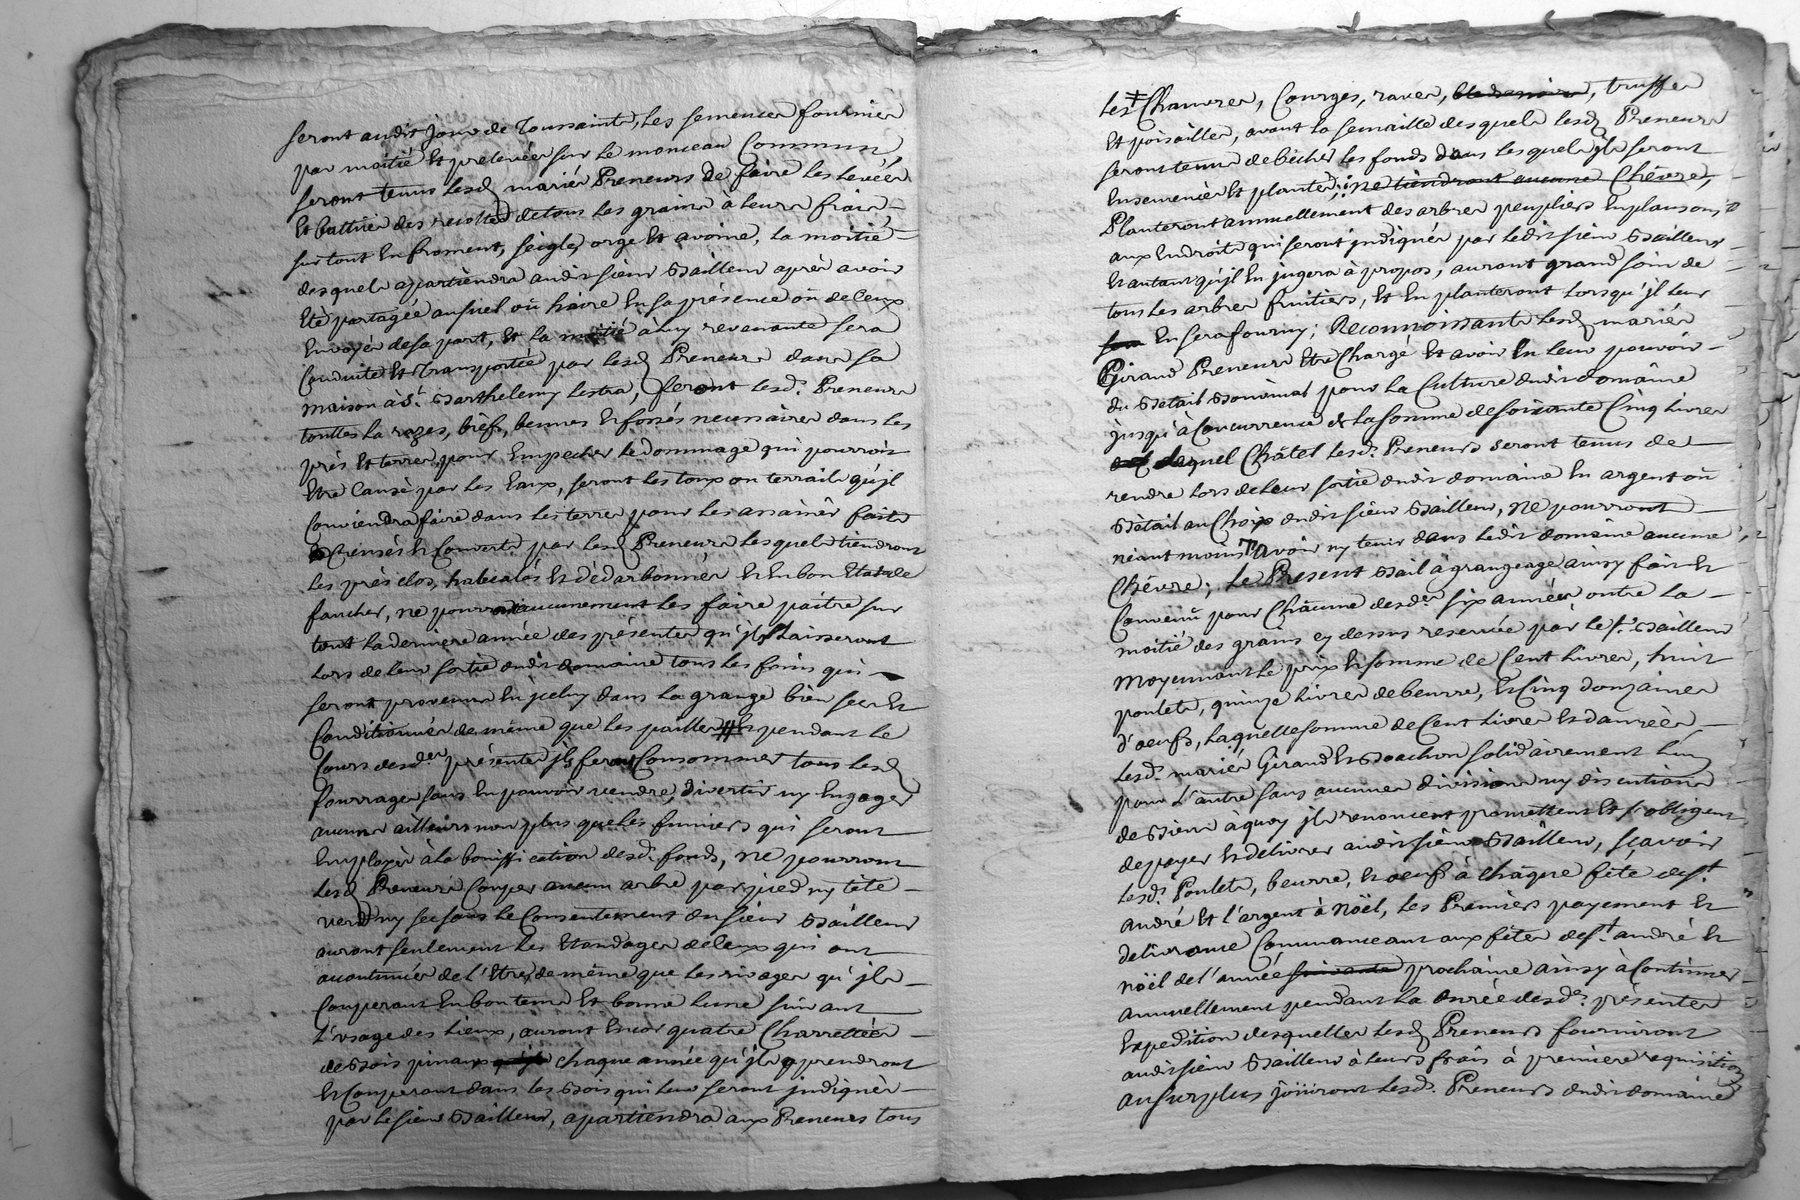 seront audit jour de Toussaints, les semences fournies
par moitié et prelevées sur le monceau Commun
seront tenus lesd mariés Preneurs de faire les levées
et battües des recoltes detous les grains à leurs frais
surtout en froment, seigle, orge et avoine, la moitié
desquels apartiendra audit sieur Bailleur aprés avoir
été partagée en sa présence ou de ceux
envoyés desa part, et la moitié à luy revenante sera
Conduite et transportée par lesd Preneurs dans sa
maison à St. Barthelemy lestra, feront lesd. Preneurs
touttes la razes, bièfs, bennes et fossés necessaires dans les
près et terres, pour empecher le dommage qui pourroit
etre Causé par les Eaux, seront les toux ou terrails qu'jl
Conviendra faire dans les terres pour les assainér faits
Creusés et Couverts par lesd Preneurs lesquels tiendront
les près clos, et dédarbonnés et en bon etat de
faucher, ne pourront aucunement les faire paitre sur
tout la derniere année des présentes qu'jls Laisseront
lors de leur sortie dudit domaine tous les foins qui
seront provenus en jceluy dans la grange bien secs et
Conditionnés de même que les pailles # et pendant le
Cours desdes présentes jls feront Consommer tous lesd
fourrages sans en pouvoir vendre, divertir ny engager
aucuns ailleurs non plus que les fumiers qui seront
employés à la bonification desd. fonds, ne pourront
lesd Preneurs Couper aucun arbre par pied ny tête
verd ny sec sans le Consentement du sieur Bailleur
auront seulement les etandages de ceux qui ont
acoutumés de l'être, de même que les rivages qu'jls
Couperont en bon tems et bonne lune suivant
l'usage des lieux, auront encor quatre Charrettées
de bois pinaux chaque année qu'jls prendront
et Couperont dans les Bois qui leur seront jndiqués
par le sieur Bailleur, apartiendra aux Preneurs tous
les ‡ Chanvres, Courges, raves, bleds noirs, truffes
et poisailles, avant la semaille desquels lesd Preneurs
seront tenus de bécher les fonds dans lesquels jls seront
Ensemencés et plantés; ne tiendront aucune Chèvre,
Planteront annuellement des arbres peupliers en plansons
aux endroits qui seront jndiqués par ledit sieur Bailleur
et autant qu'jl en jugera à propos, auront grand soin de
tous les arbres fruitiers, et en planteront lorsqu'jl leur
en sera fourny; Reconnoissants lesd mariés
Giraud Preneurs etre Chargé et avoir en leur pouvoir
du Betail pour la Culture dudit domaine
jusqu'à Concurrence de la somme de soixante Cinq livres
lequel Châtel lesd. Preneurs seront tenus de
rendre lors de leur sortie dudit domaine en argent ou
Bétail au Choix dudit sieur Bailleur, Ne pourront
néantmoins avoir ny tenir dans ledit domaine aucune
Chévre; le Present Bail à grangeage ainsy fait et
Convenü pour Châcune desdes six années outre la
moitié des grains cy dessus reservée par le sr. Bailleur
Moyennant le prix et somme de Cent livres, huit
poulets, quinze livres de beurre, et Cinq douzaines
d'oeufs, laquelle somme de Cent livres et danrées
lesd. mariés Giraud et Bachon solidairement l'un
pour l'autre sans aucunes divisions ny discutions
de Biens à quoy jls renoncent promettent et s'obligent
de payer et delivrer audit sieur Bailleur, sçavoir
lesd. Poulets, beurre, et oeufs à châque fête de St.
André et l'argent à Noël, les Premiers payement et
delivrance Commanceant aux fêtes de St. André et
Noël de l'année suivante prochaine ainsy à Continuer
annuellement pendant la durée desdes présentes
Expedition desquelles lesd Preneurs fourniront
audit sieur Bailleur à leurs frais à premiere requisition
au surplus joüiront lesd. Preneurs dudit domaine